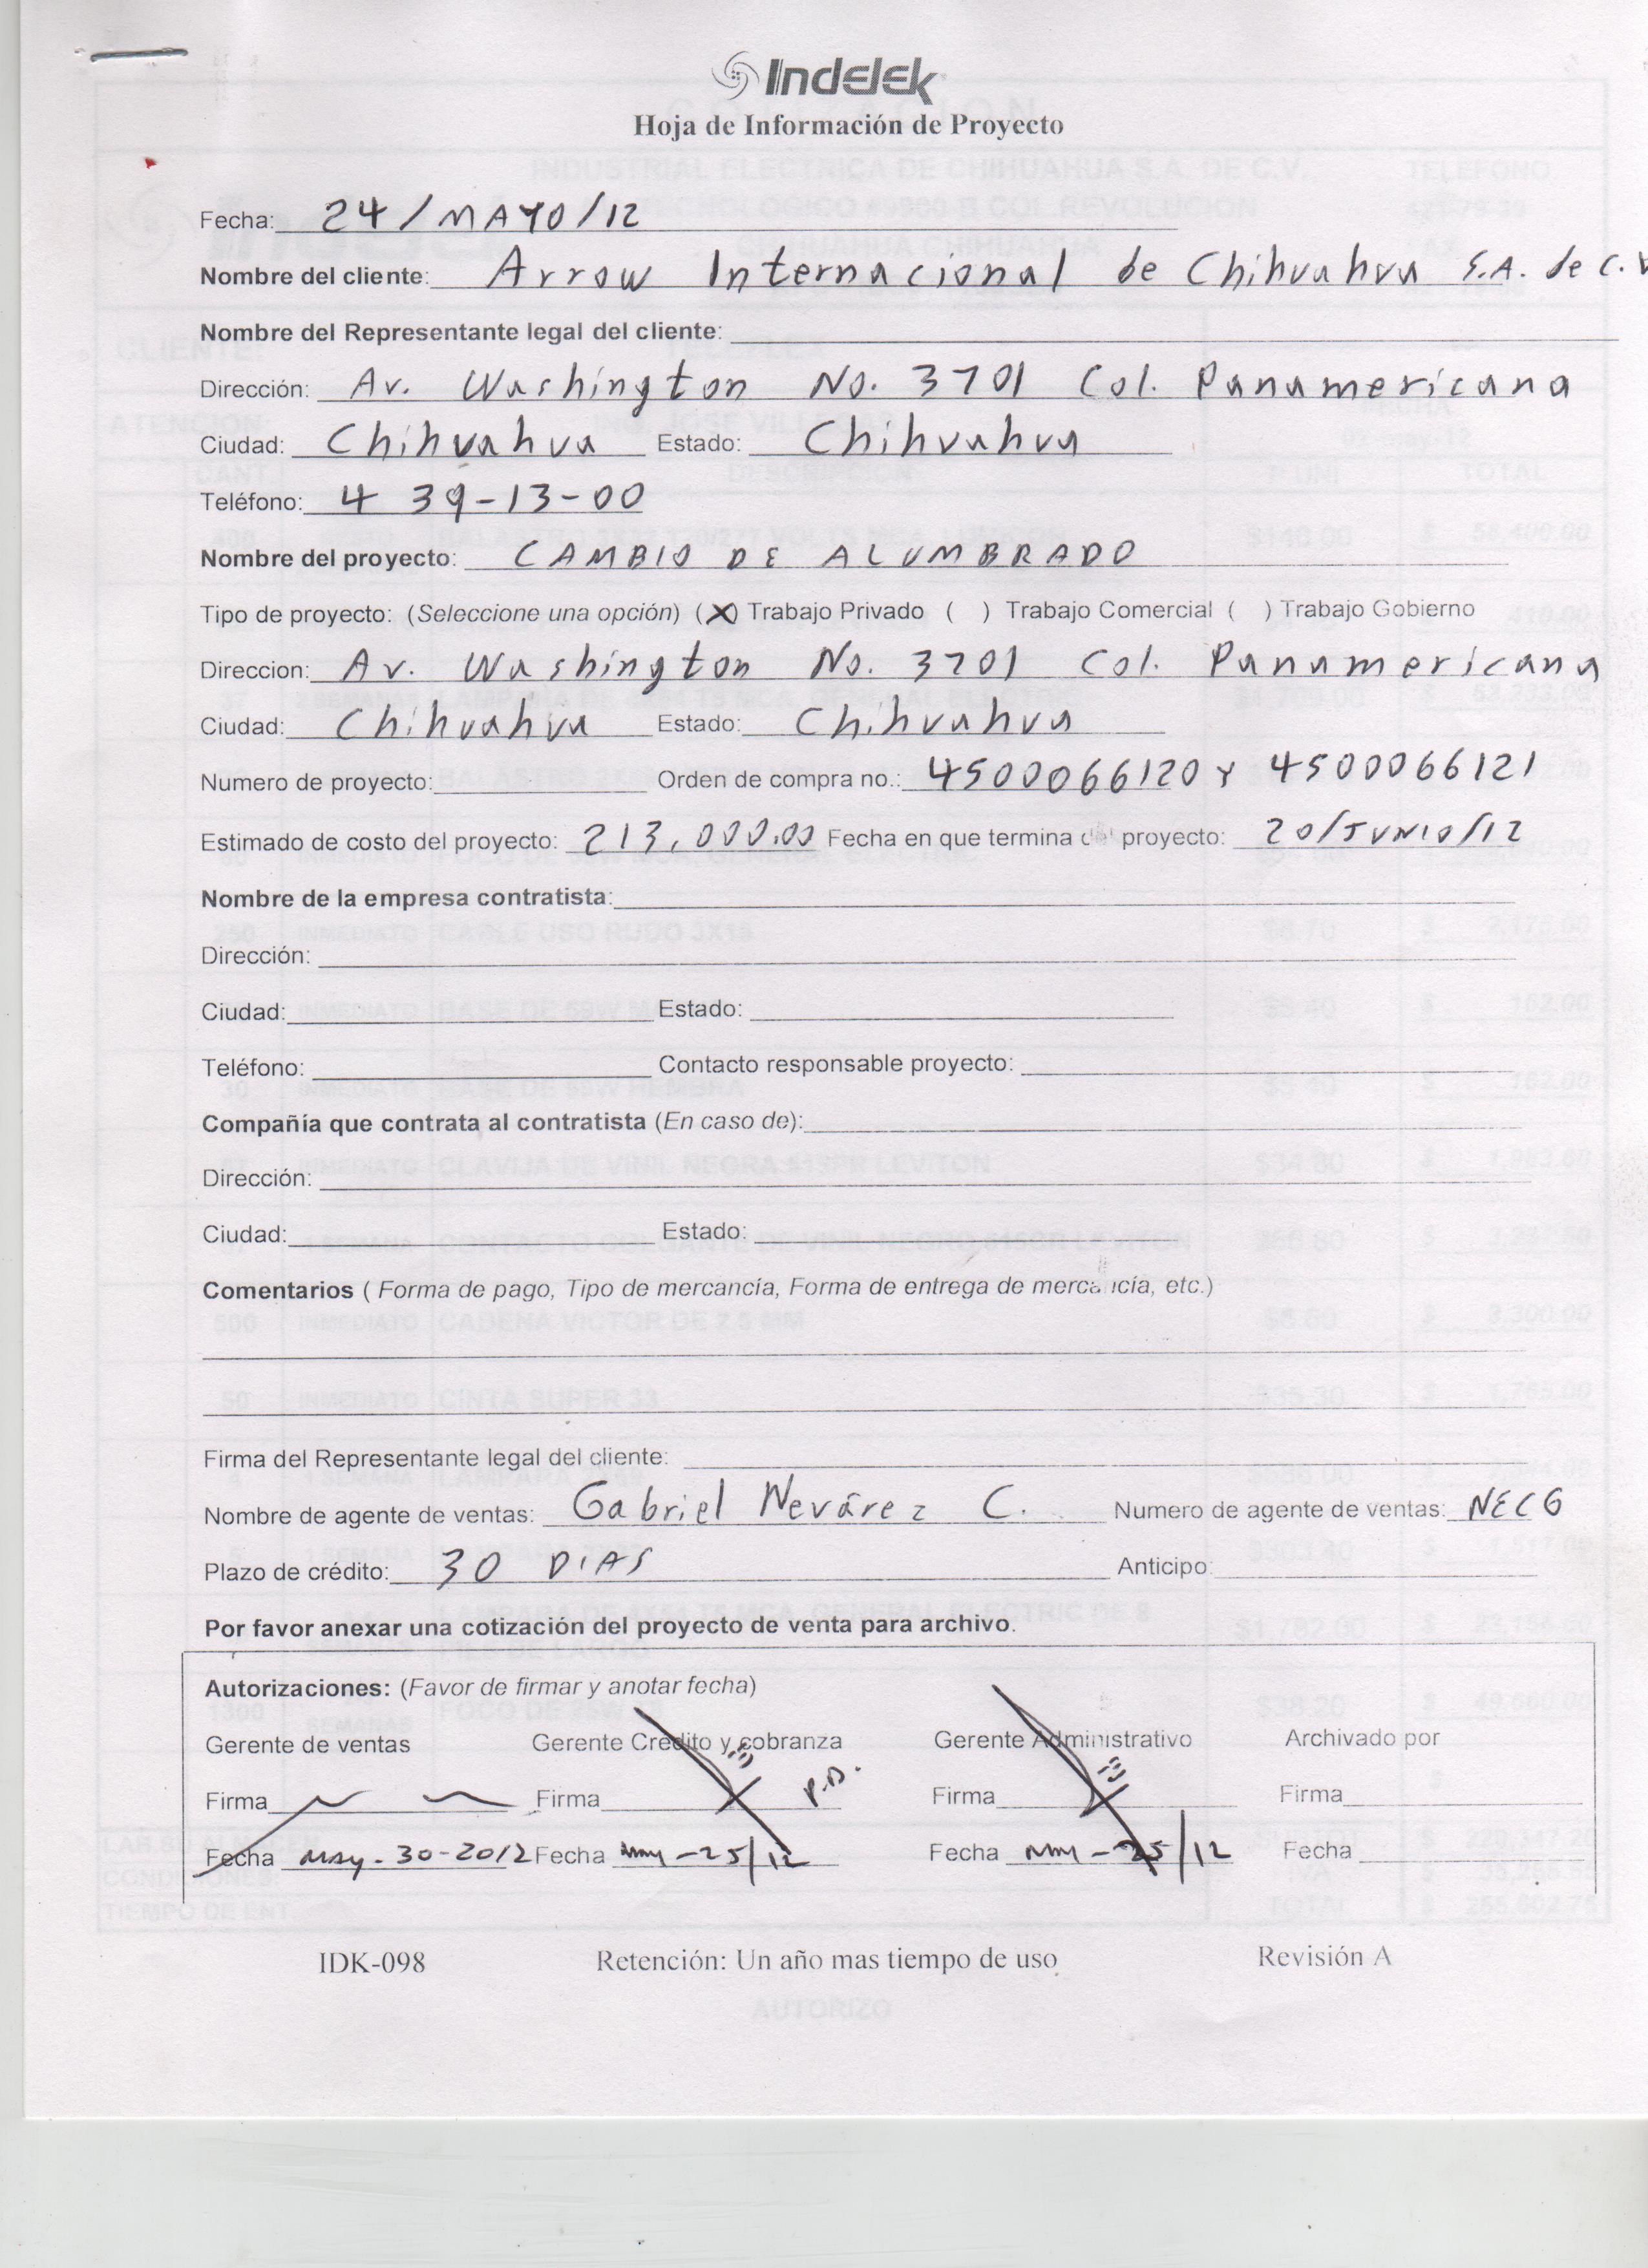 Indelek
Hoja de Información de Proyecto
Fecha: 24/MAYO/12
Nombre del cliente: Arrow Internacional de Chihuahua S.A. de C.V
Nombre del Representante legal del cliente:
Dirección: Av. Washington No. 3701 Col. Panamericana
Ciudad: Chihuahua Estado: Chihuahua
Teléfono: 4 39-13-00
Nombre del proyecto: CAMBIO DE ALUMBRADO
Tipo de proyecto: (Seleccione una opción) (X) Trabajo Privado ( ) Trabajo Comercial ( ) Trabajo Gobierno
Direccion: Av. Washington No. 3701 Col. Panamericana
Ciudad: Chihuahua Estado: Chihuahua
Numero de proyecto: Orden de compra no.: 4500066120 Y 4500066121
Estimado de costo del proyecto: 213,000.00 Fecha en que termina del proyecto: 20/JUNIO/12
Nombre de la empresa contratista:
Dirección:
Ciudad: Estado:
Teléfono: Contacto responsable proyecto:
Compañía que contrata al contratista (En caso de):
Dirección:
Ciudad: Estado:
Comentarios ( Forma de pago, Tipo de mercancía, Forma de entrega de mercancía, etc.)
Firma del Representante legal del cliente:
Nombre de agente de ventas: Gabriel Nevárez C. Numero de agente de ventas: NECG
Plazo de crédito: 30 DIAS Anticipo:
Por favor anexar una cotización del proyecto de venta para archivo.
Autorizaciones: (Favor de firmar y anotar fecha)
Gerente de ventas Gerente Credito y cobranza Gerente Administrativo Archivado por
Firma Firma P.D. Firma Firma
Fecha May-30-2012 Fecha May-25/12 Fecha May-25/12 Fecha
IDK-098 Retención: Un año mas tiempo de uso Revisión A